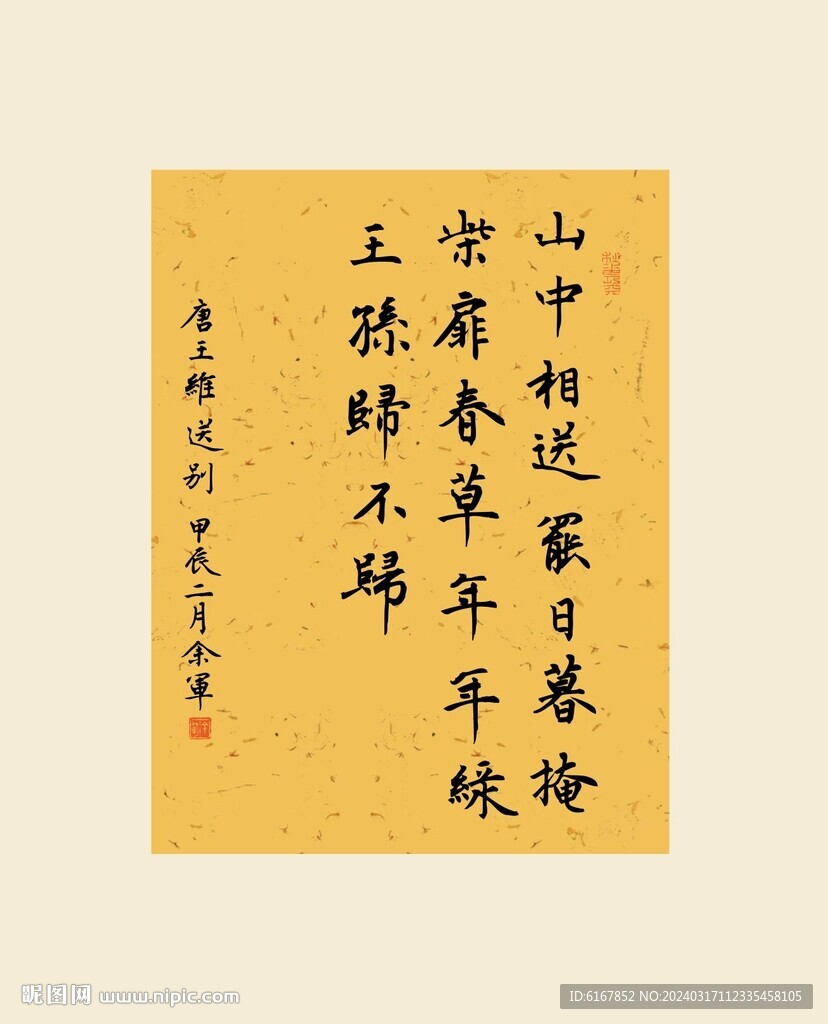 山中相送罷日暮掩
柴扉春草年年綠
王孫歸不歸
唐王維送别甲辰二月余軍
昵图网 www.nipic.com
ID:6167852 NO:20240317112335458105